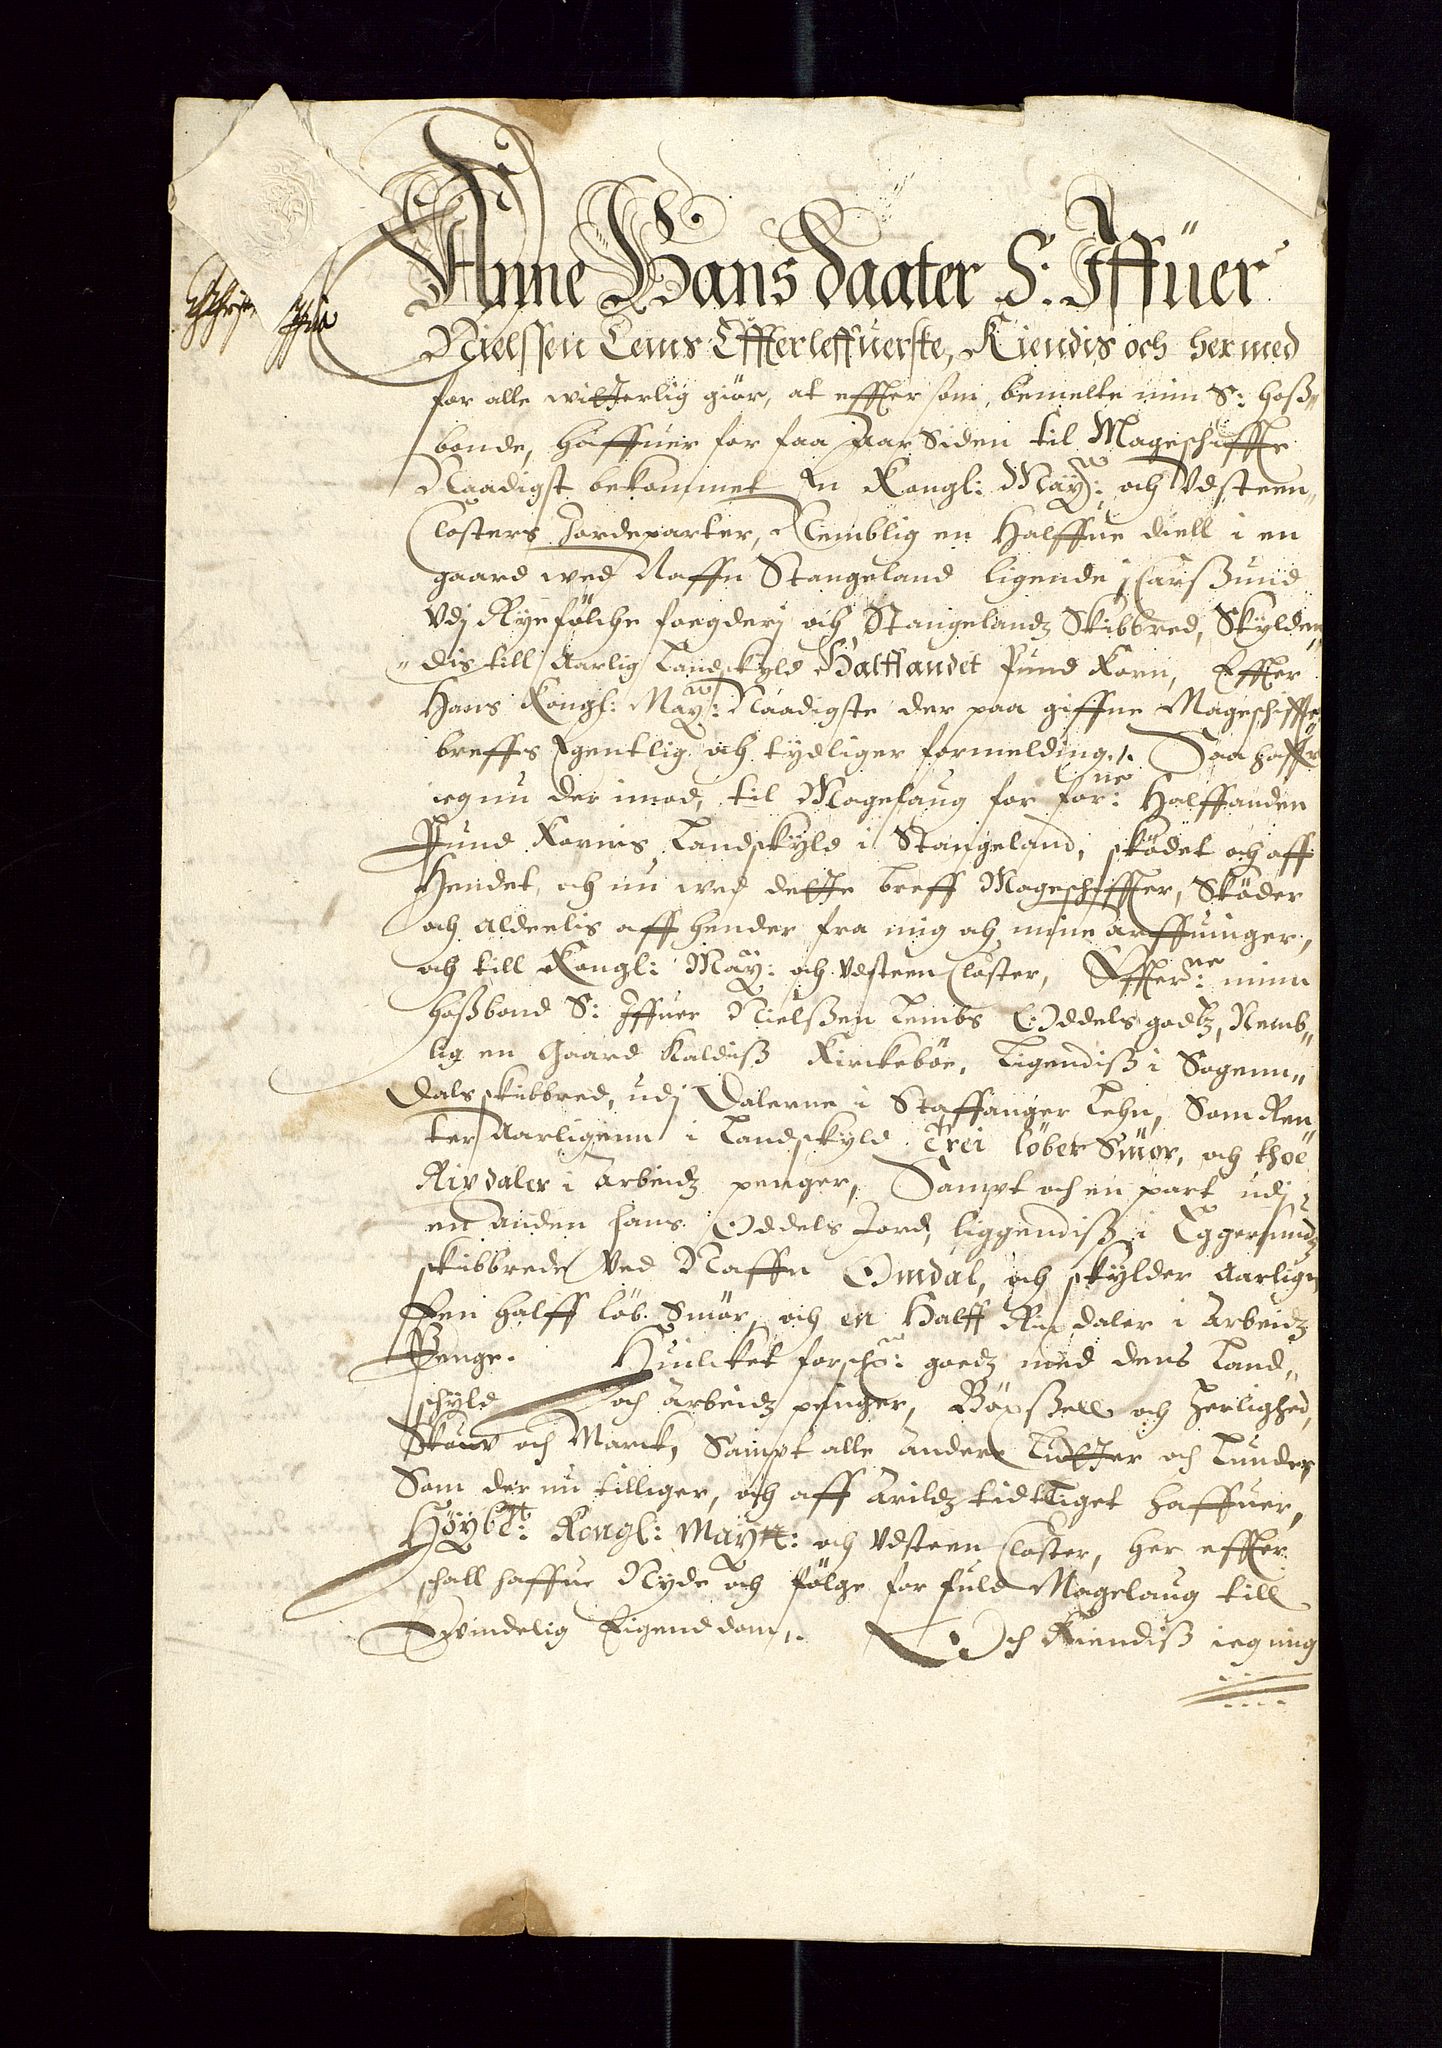 Anne Hans daater S: Iffuer
Nielssen Lems Effterleffuerske, Kiendis och her med
for alle witterlig giör, at effter som, bemelte min S: Hoß„
bonde, haffuer for faa Aar siden til Mageschiffte
Naadigst bekommet en Kongl: May: och Vdsteen
Closters Jordeparter, Nemblig en Halffue diell i en
gaard wed Naffn Stangeland ligende i Carßund
Vdj Ryefölche foegderj och Stangelandz Skibbred, Skylden„
„dis till Aarlig Landskyld Halffandet Pund Korn, Effter
Hans Kongl: May: Naadigste der paa giffne Mageschiffte
breffs Egentlig och tydliger formelding ./. Saa haffr
ieg nu der imod, til Magelaug for forne: Halffanden
Pund Korns Landskyld i Stangeland, sködet och aff
Hendet, och nu wed dette breff Mageschiffter, Sköder
och Aldeelis aff hender fra mig och mine arffuinger,
och till Kongl: May: och Vdsteen Closter, minn
Hoßbond S: Iffuer Nielßen Lembs Oddels godtz, Nemb„
lig en Gaard Kaldiß Kirckeböe, Ligendiß i Sogenn„
dals skibbred, udj Dalerne i Staffanger Lehn, Som Ren
ter Aarligenn i Landskyld Trei löber Smör, och thoe
Rixdaler i Arbeidz penger, Sampt och en part udj
en anden hans Oddels Jord, liggendiß i Eggersundz
skibbrede Ved Naffn Omdal, och skylder Aarligen
Een halff löb. Smör, och en Halff Rixdaler i Arbeidz
Penge. Huilcket forschr: goedz med dens Land„
schyld och Arbeidz penger, Böxßell och Herlighed,
Skouv och Marck, Sampt alle andre Lutter och Lunder
Som der nu tilliger, och aff Arildz tid tilliget haffuer,
Höybte: Kongl: Maytt: och Vdsteen Closter, her effter
schall haffue Nyde och fölge for fuld Magelaug till
Ewindelig Eigenddom ,. Och Kiendiß ieg mig